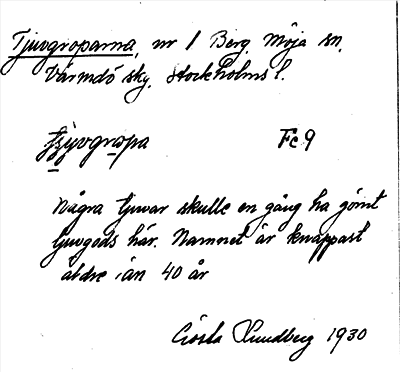 Tjuvgroparna, nr 1 Berg, Möja sn,
Värmdö sky. Stockholms l.
tjyvgropa Fc 9
Några tjuvar skulle en gång ha gömt
tjuvgods här. Namnet är knappast
äldre än 40 år
Gösta Sundberg 1930